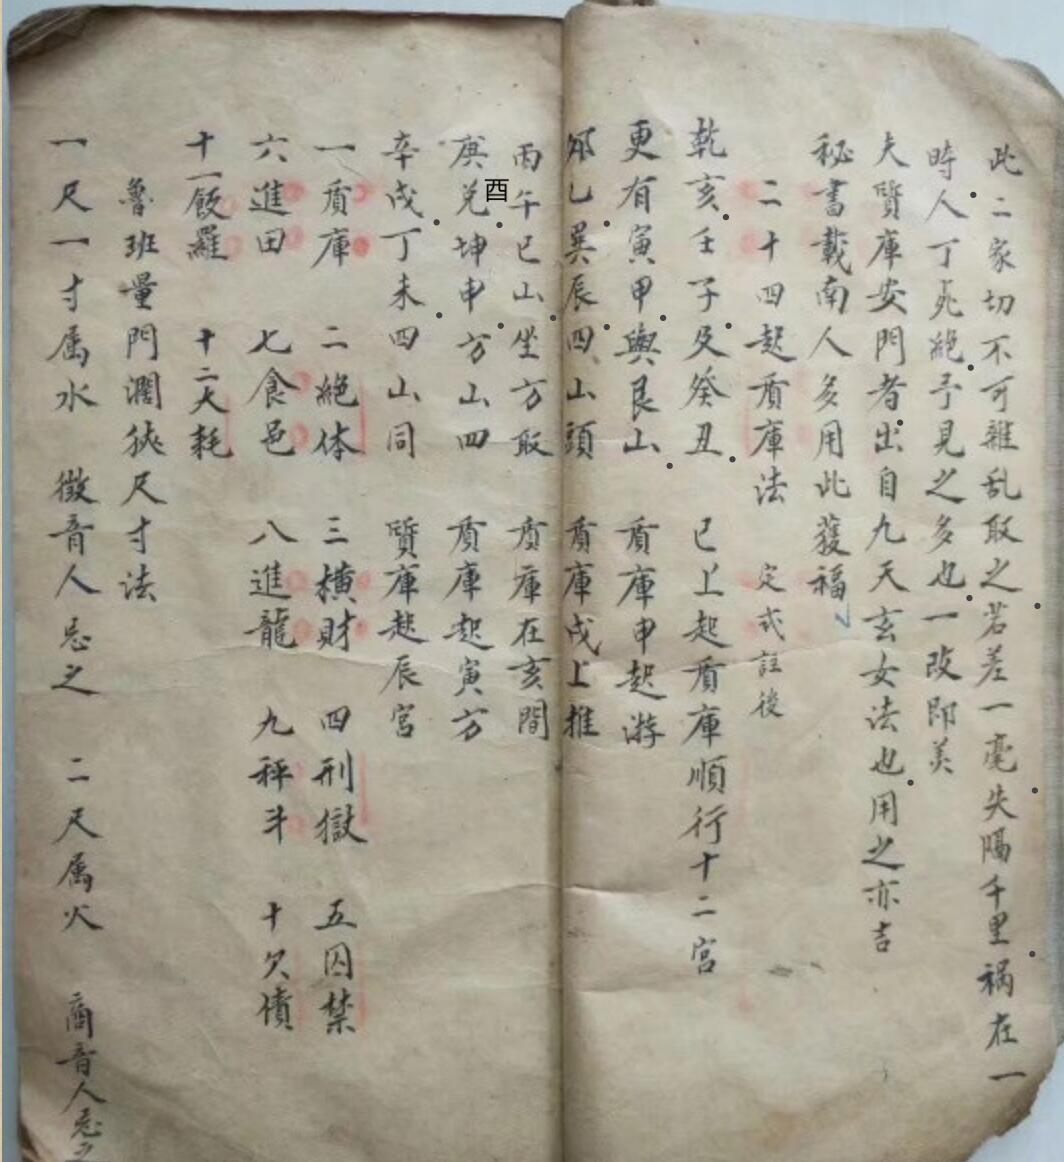 此二家切不可雜乱取之若差一毫失隔千里祸在一
時人丁死絶予見之多也一改即美
夫質庫安門者出自九天玄女法也用之亦吉
秘書載南人多用此獲福
二十四起質庫法 定式註後
乾亥壬子及癸丑 已上起質庫順行十二宮
更有寅甲與艮山 質庫申起游
卯乙巽辰四山頭 質庫戌上推
丙午巳山坐方取 質庫在亥間
酉
庚兑坤申方山四 質庫起寅方
辛戌丁未四山同 質庫起辰宮
一質庫 二絶体 三横財 四刑獄 五囚禁
六進田 七食邑 八進龍 九秤斗 十欠債
十一飯羅 十二大耗
魯班量門濶狹尺寸法
一尺一寸属水 徵音人忌之 二尺属火 商音人忌之